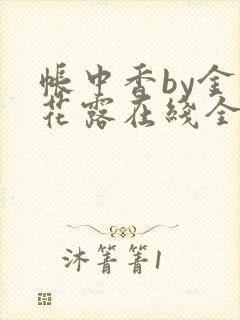 帐中香by金
花露在线全
沐箐箐1